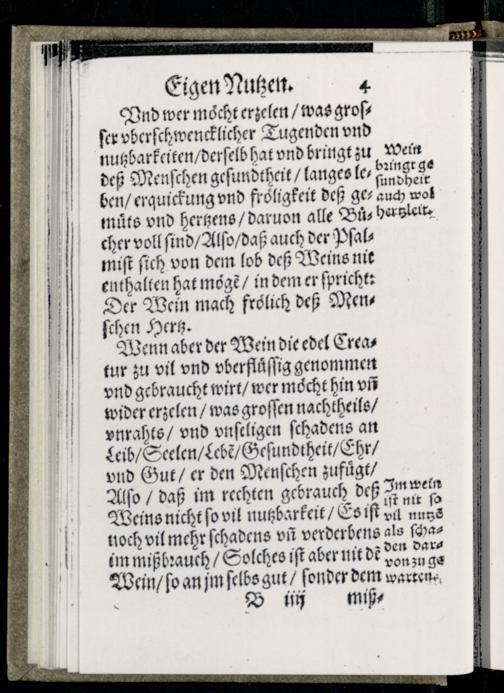 Eigen Nutzen. 4
Vnd wer möcht erzelen / was gros-
ser vberschwencklicher Tugenden vnd
nutzbarkeiten / derselb hat vnd bringt zu
deß Menschen gesundtheit / langes le-
ben / erquickung vnd fröligkeit deß ge-
müts vnd hertzens / daruon alle Bü-
cher voll sind / Also / daß auch der Psal-
mist sich von dem lob deß Weins nit
enthalten hat mögẽ / in dem er spricht:
Der Wein mach frölich deß Men-
schen Hertz.
Wein
bringt ge
sundheit
auch wol
hertzleit.
Wenn aber der Wein die edel Crea-
tur zu vil vnd vberflüssig genommen
vnd gebraucht wirt / wer möcht hin vñ
wider erzelen / was grossen nachtheils /
vnrahts / vnd vnseligen schadens an
Leib / Seelen / Lebẽ / Gesundtheit / Ehr /
vnd Gut / er den Menschen zufügt /
Also / daß im rechten gebrauch deß
Weins nicht so vil nutzbarkeit / Es ist
noch vil mehr schadens vñ verderbens
im mißbrauch / Solches ist aber nit dẽ
Wein / so an jm selbs gut / sonder dem
Im wein
ist nit so
vil nutzẽ
als scha-
den dar-
von zu ge
warten.
B iiij miß-